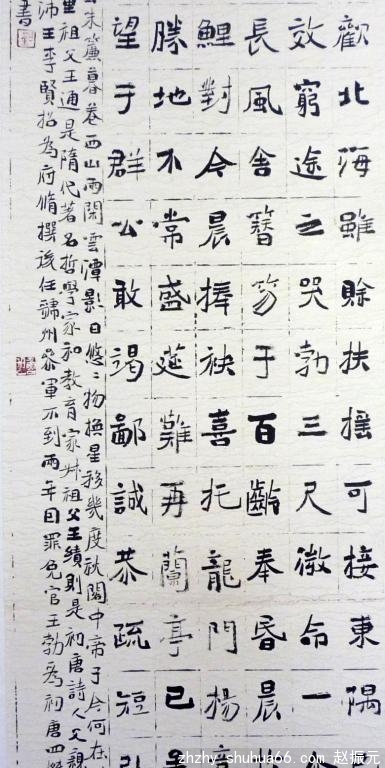 歡北海雖賒扶搖可接東隅
效窮途之哭勃三尺微命一
長風舍簪笏于百齡奉昏晨
鯉對今晨捧袂喜托龍門楊
勝地不常盛筵難再蘭亭已
望于群公敢竭鄙誠恭疏短引
朱簾暮卷西山雨閑雲潭影日悠々物換星移幾度秋閣中帝子今何在
祖父王通是隋代著名哲學家和教育家叔祖父王績則是初唐詩人父親
沛王李賢招為府脩撰後任虢州參軍不到兩年因罪免官王勃為初唐四
書
zhzhy.shuhua66.com 赵振元